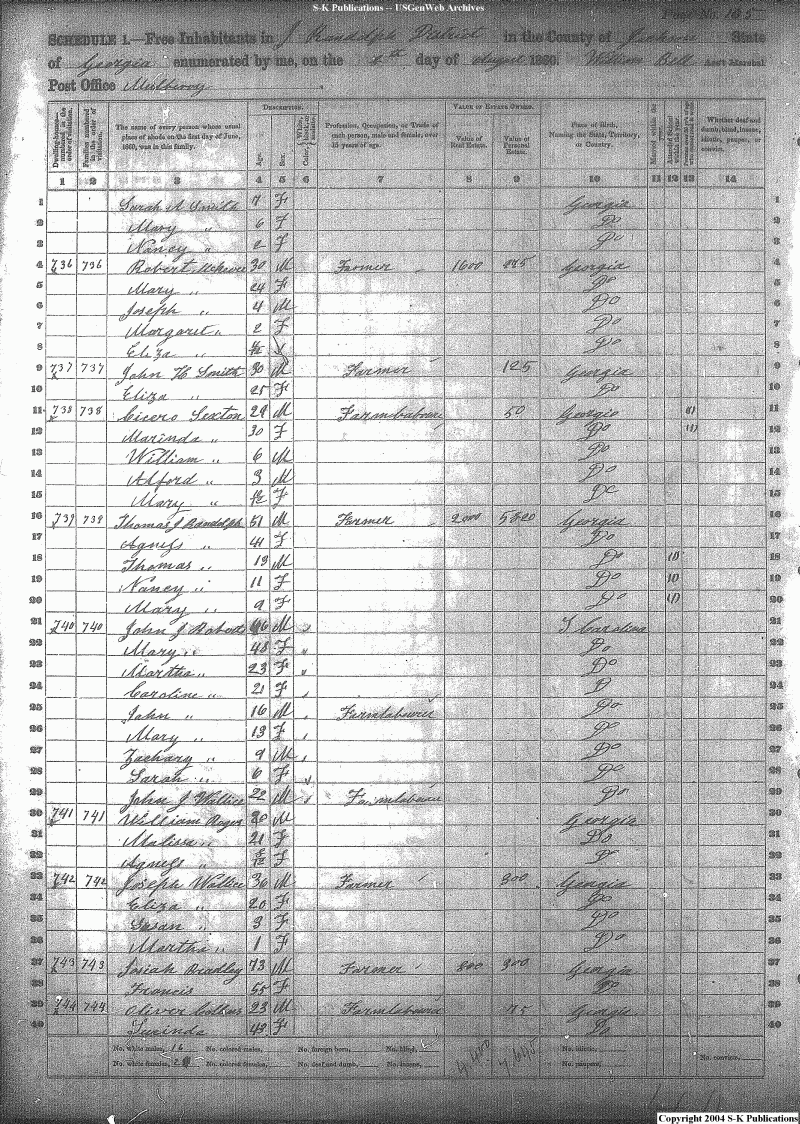 S-K Publications -- USGenWeb Archives
Page No. 165
SCHEDULE 1.—Free Inhabitants in J Randolph District in the County of Jackson State
of Georgia enumerated by me, on the day of August 1860. William Bell Ass't Marshal
Post Office Mulberry
Dwelling-houses—numbered in the order of visitation.
Families numbered in the order of visitation.
The name of every person whose usual place of abode on the first day of June, 1860, was in this family.
DESCRIPTION.
Age.
Sex.
Color, White, black, or mulatto.
Profession, Occupation, or Trade of each person, male and female, over 15 years of age.
VALUE OF ESTATE OWNED.
Value of Real Estate.
Value of Personal Estate.
Place of Birth, Naming the State, Territory, or Country.
Married within the year.
Attended School within the year.
Whether deaf and dumb, blind, insane, idiotic, pauper, or convict.
1 2 3 4 5 6 7 8 9 10 11 12 13 14
1 Sarah A Smith 7 F Georgia 1
2 Mary " 6 F Do 2
3 Nancy " 2 F Do 3
4 736 736 Robert 30 M Farmer 1600 Georgia 4
5 Mary " 24 F Do 5
6 Joseph " 4 M Do 6
7 Margaret " 2 F Do 7
8 Eliza " Do 8
9 737 737 John H Smith 30 M Farmer 125 Georgia 9
10 Eliza " 25 F Do 10
11 738 738 Cicero Sexton 29 M Farmlabourer 50 Georgia 11
12 Marinda " 30 F Do 12
13 William " 6 M Do 13
14 Alford " 3 M Do 14
15 Mary " F Do 15
16 739 739 Thomas J Randolph 51 M Farmer 2000 Georgia 16
17 Agness " 41 F Do 17
18 Thomas " 19 M Do (1) 18
19 Nancy " 11 F Do (1) 19
20 Mary " 9 F Do (1) 20
21 740 740 John J Roberts 46 M S Carolina 21
22 Mary " 48 F Do 22
23 Martha " 23 F Do 23
24 Caroline " 21 F D 24
25 John " 16 M Farmlabourer Do 25
26 Mary " 13 F Do 26
27 Zachary " 9 M Do 27
28 Sarah " 6 F Do 28
29 John J Wallice 22 M Farmlabourer Do 29
30 741 741 William Roger 20 M Georgia 30
31 Malissa " 21 F Do 31
32 Agness " F Do 32
33 742 742 Joseph Wallice 36 M Farmer 300 Georgia 33
34 Eliza " 20 F Do 34
35 Susan " 3 F Do 35
36 Martha " 1 F Do 36
37 743 743 Josiah Bradley 73 M Farmer 800 300 Georgia 37
38 Francis 55 F Do 38
39 744 744 Oliver Collins 23 M Farmlabourer 75 Georgia 39
40 Lurinda 43 F Do 40
No. white males, 16 No. colored males, No. foreign born, No. blind, No. idiotic, No. convicts,
No. white females, No. colored females, No. deaf and dumb, No. insane, No. paupers,
Copyright 2004 S-K Publications